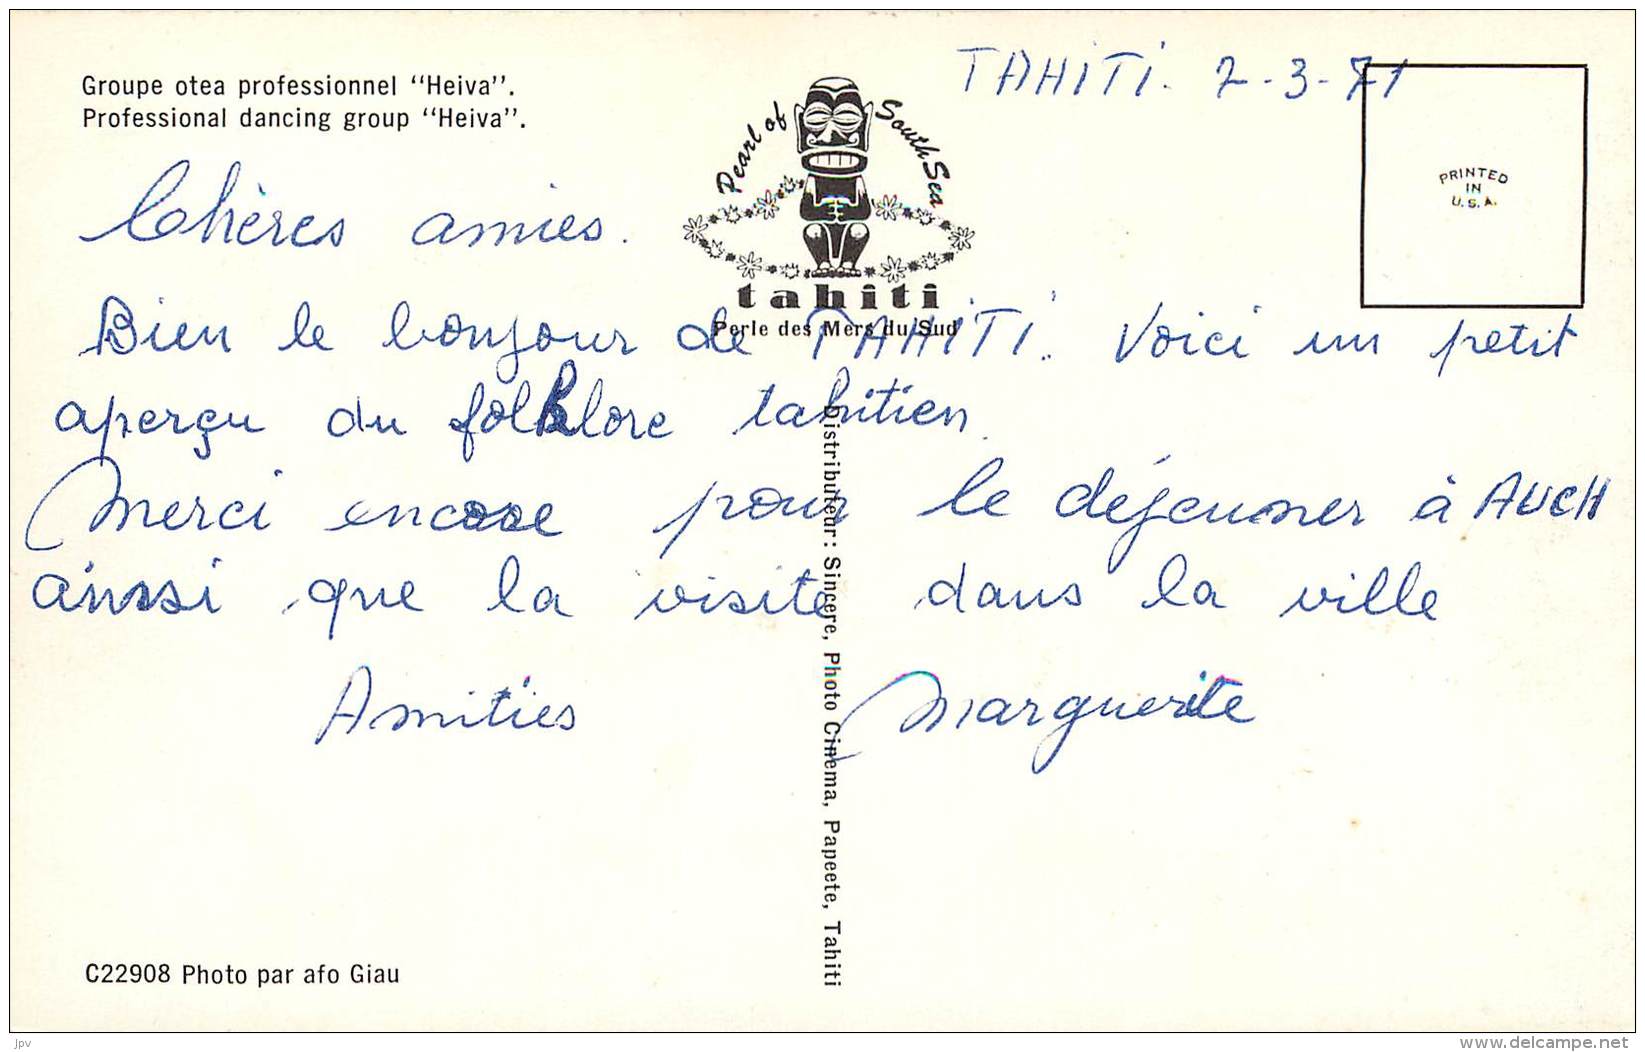 TAHITI. 2-3-71
Groupe otea professionnel "Heiva".
Professional dancing group "Heiva".
Pearl of South Sea
tahiti
Perle des Mers du Sud
PRINTED
IN
U.S.A.
Chères amies.
Bien le bonjour de TAHITI. Voici un petit
aperçu du folklore tahitien.
Merci encore pour le déjeuner à AUCH
ainsi que la visite dans la ville
Amitiés Marguerite
Distributeur: Sincere, Photo Cinema, Papeete, Tahiti
C22908 Photo par afo Giau
jpv
www.delcampe.net